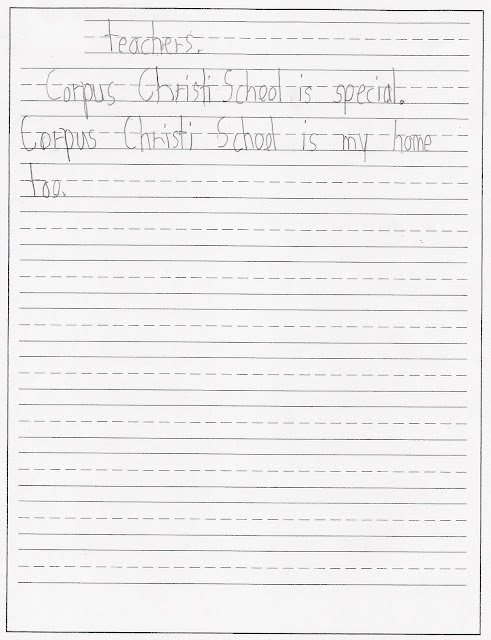 teachers.
Corpus Christi School is special.
Corpus Christi School is my home
too.